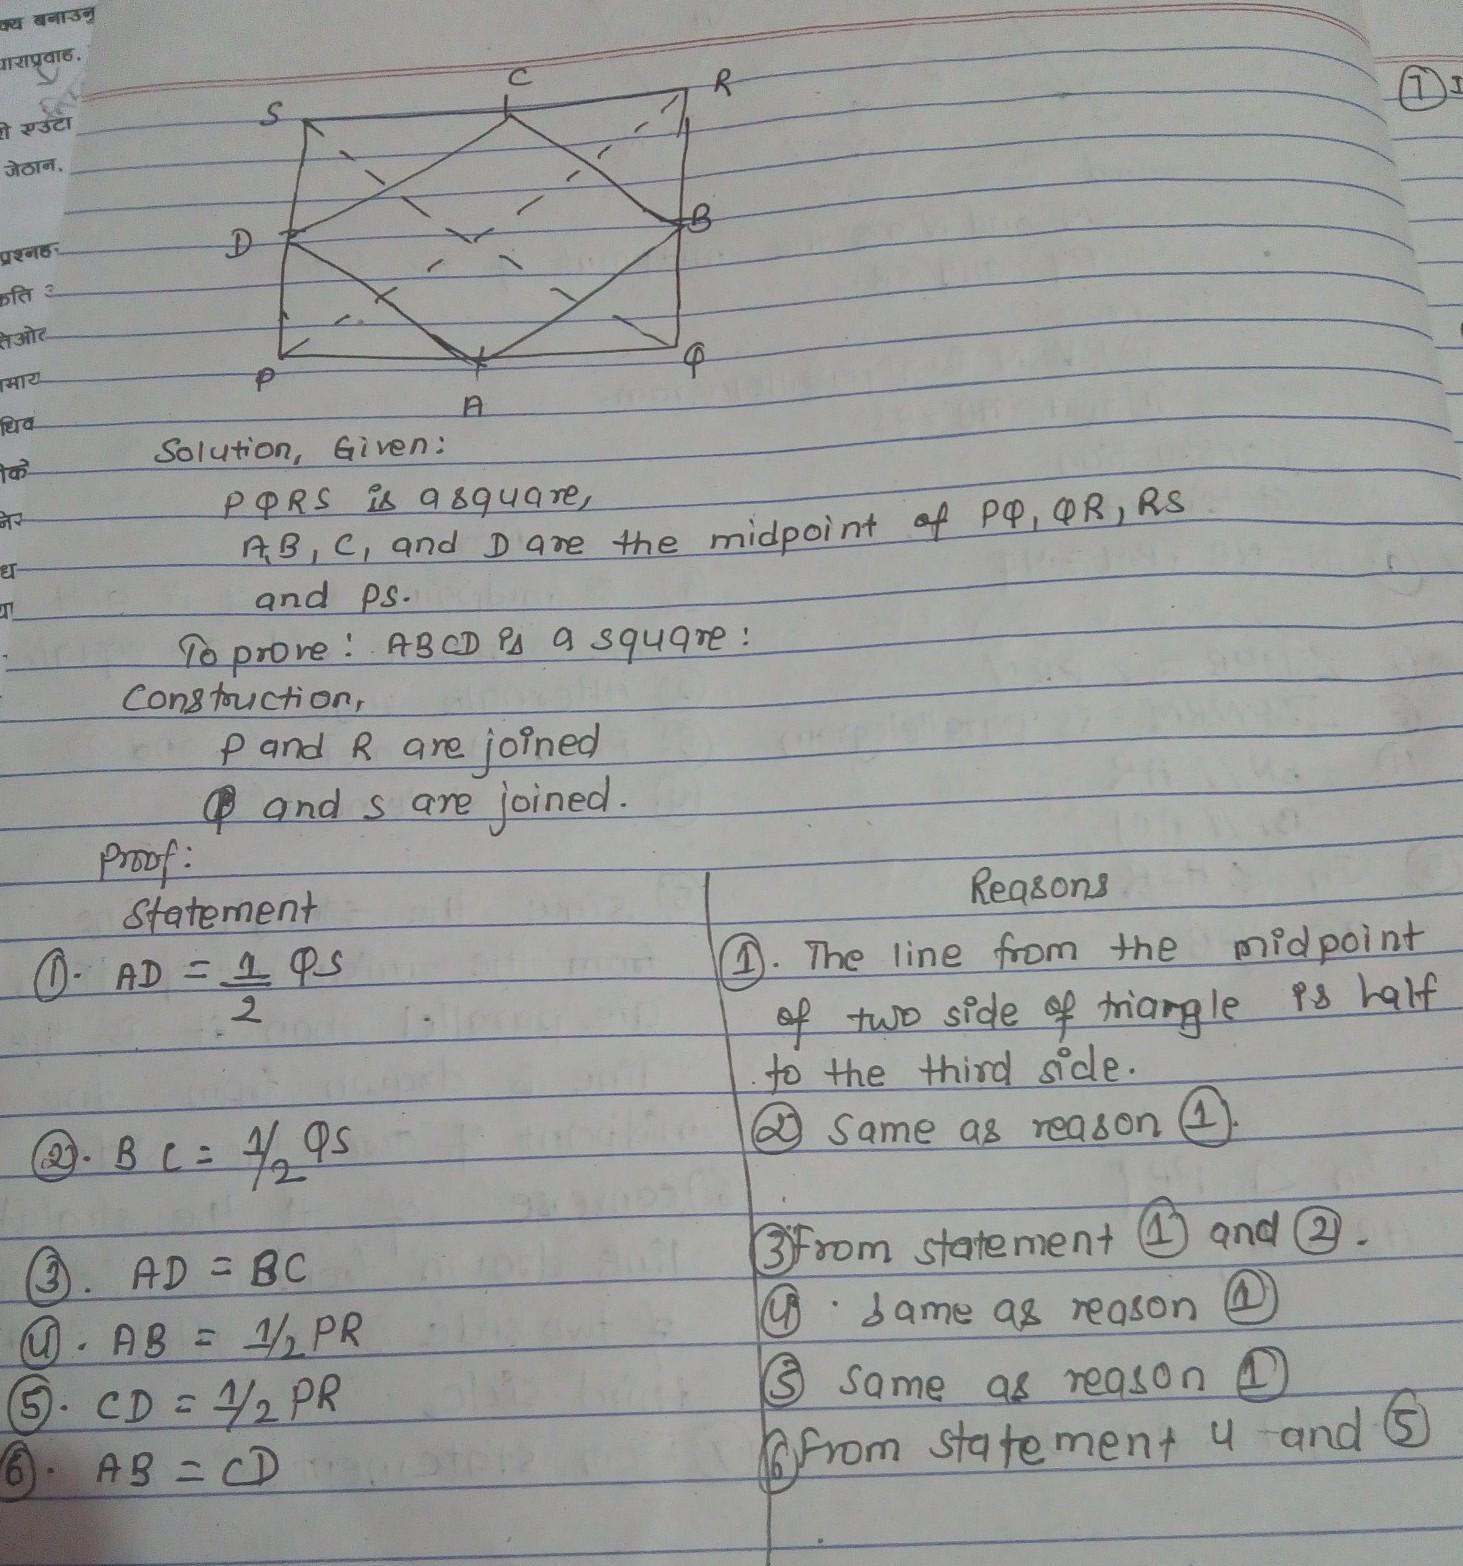 क्य बनाउनु
एउटा
जेठान.
कति ?
C
R
S
D
B
P
A
Q
Solution, Given:
PQRS is a square,
A,B, C, and D are the midpoint of PQ, QR, RS
and PS.
To prove: ABCD is a square:
Construction,
P and R are joined
Q and S are joined.
Proof:
Statement
Reasons
①. AD = 1/2 QS
①. The line from the midpoint
of two side of triangle is half
to the third side.
②. BC = 1/2 QS
② Same as reason ①.
③. AD = BC
③ From statement ① and ②.
④. AB = 1/2 PR
④. Same as reason ①
⑤. CD = 1/2 PR
⑤ Same as reason ①
⑥. AB = CD
⑥ From statement 4 and ⑤